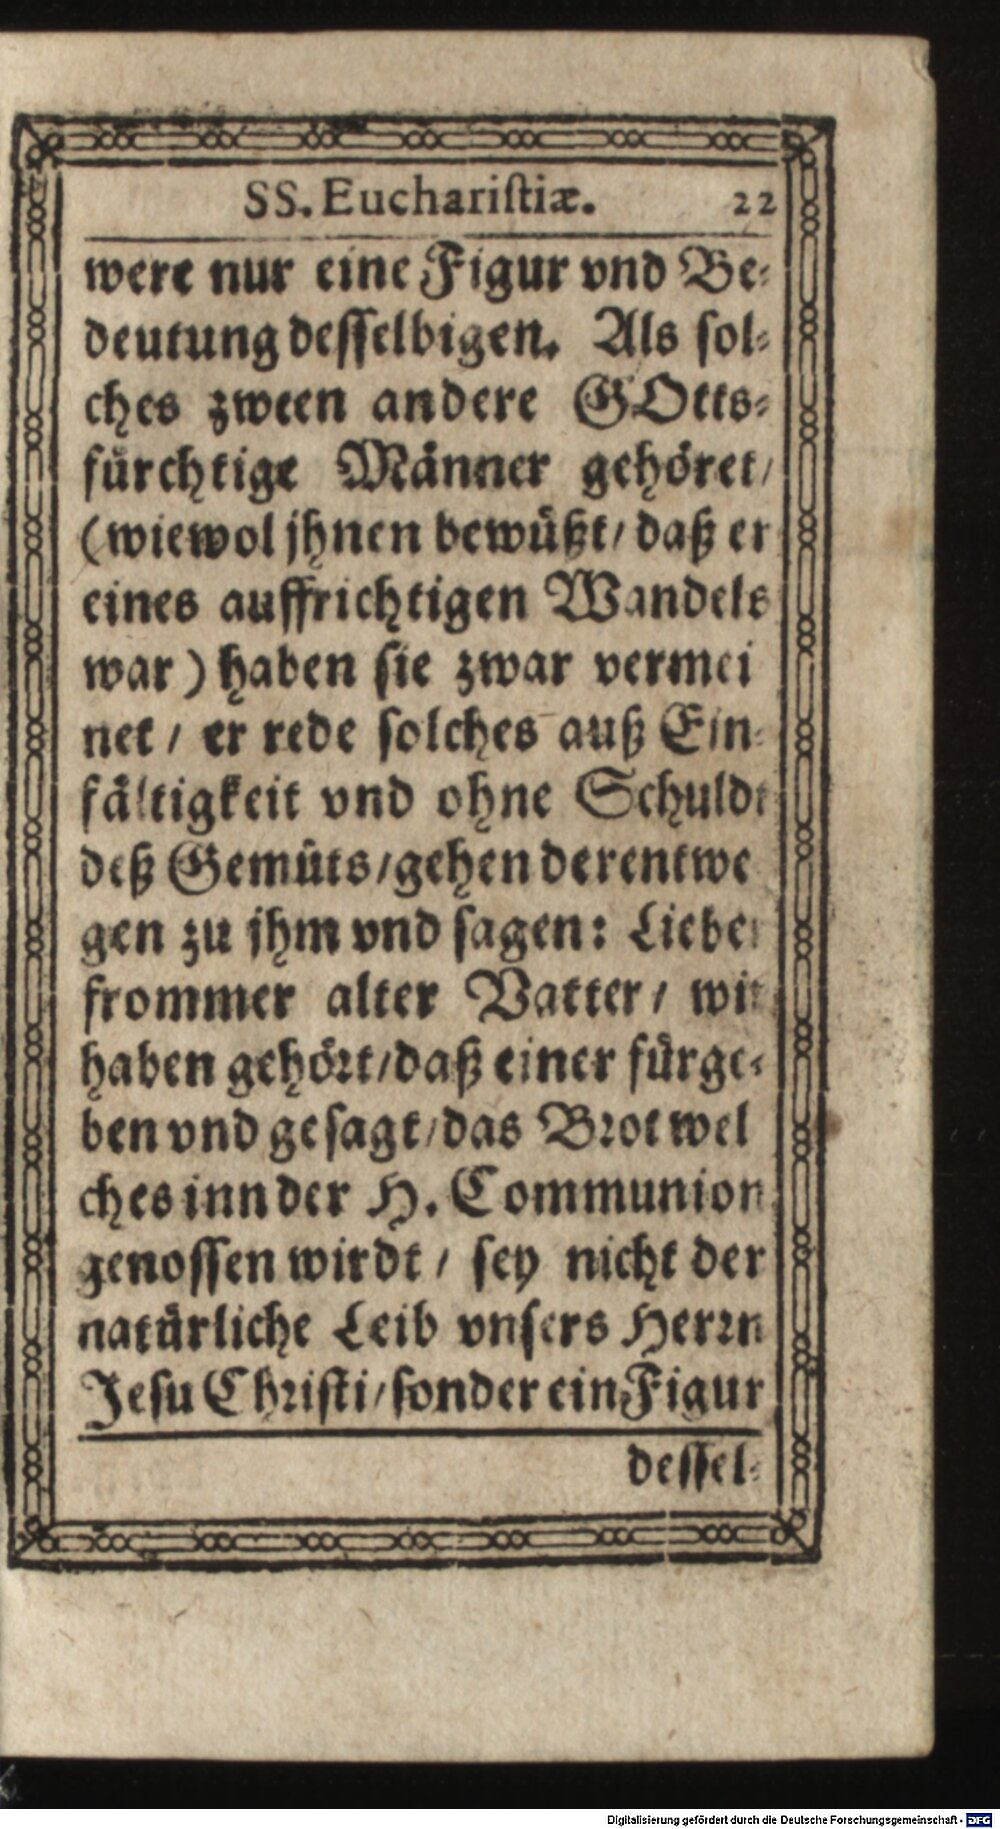 SS. Euchariſtiæ. 22
were nur eine Figur vnd Be⸗
deutung deſſelbigen. Als ſol⸗
ches zween andere GOtts⸗
fuͤrchtige Maͤnner gehoͤret/
(wiewol jhnen bewuͤßt/ daß er
eines auffrichtigen Wandels
war) haben ſie zwar vermei
net/ er rede ſolches auß Ein⸗
faͤltigkeit vnd ohne Schuldt
deß Gemuͤts/ gehen derentwe
gen zu jhm vnd ſagen: Lieber
frommer alter Vatter/ wir
haben gehoͤꝛt/ daß einer fuͤrge⸗
ben vnd geſagt/ das Bꝛot wel
ches inn der H. Communion
genoſſen wirdt/ ſey nicht der
natuͤrliche Leib vnſers Herꝛn
Jeſu Chꝛiſti/ ſonder ein Figur
deſſel⸗
Digitalisierung gefördert durch die Deutsche Forschungsgemeinschaft - DFG